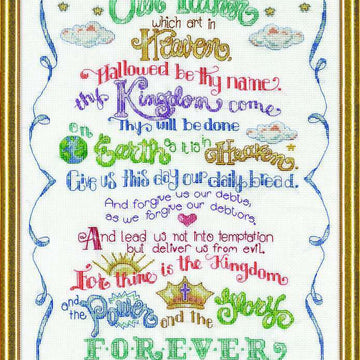 Our Father
which art in
Heaven.
Hallowed be thy name.
thy Kingdom come
Thy will be done
on Earth as it is in Heaven.
Give us this day our daily bread.
And forgive us our debts,
as we forgive our debtors.
And lead us not into temptation
but deliver us from evil.
For thine is the Kingdom
and the Power and the Glory
FOREVER